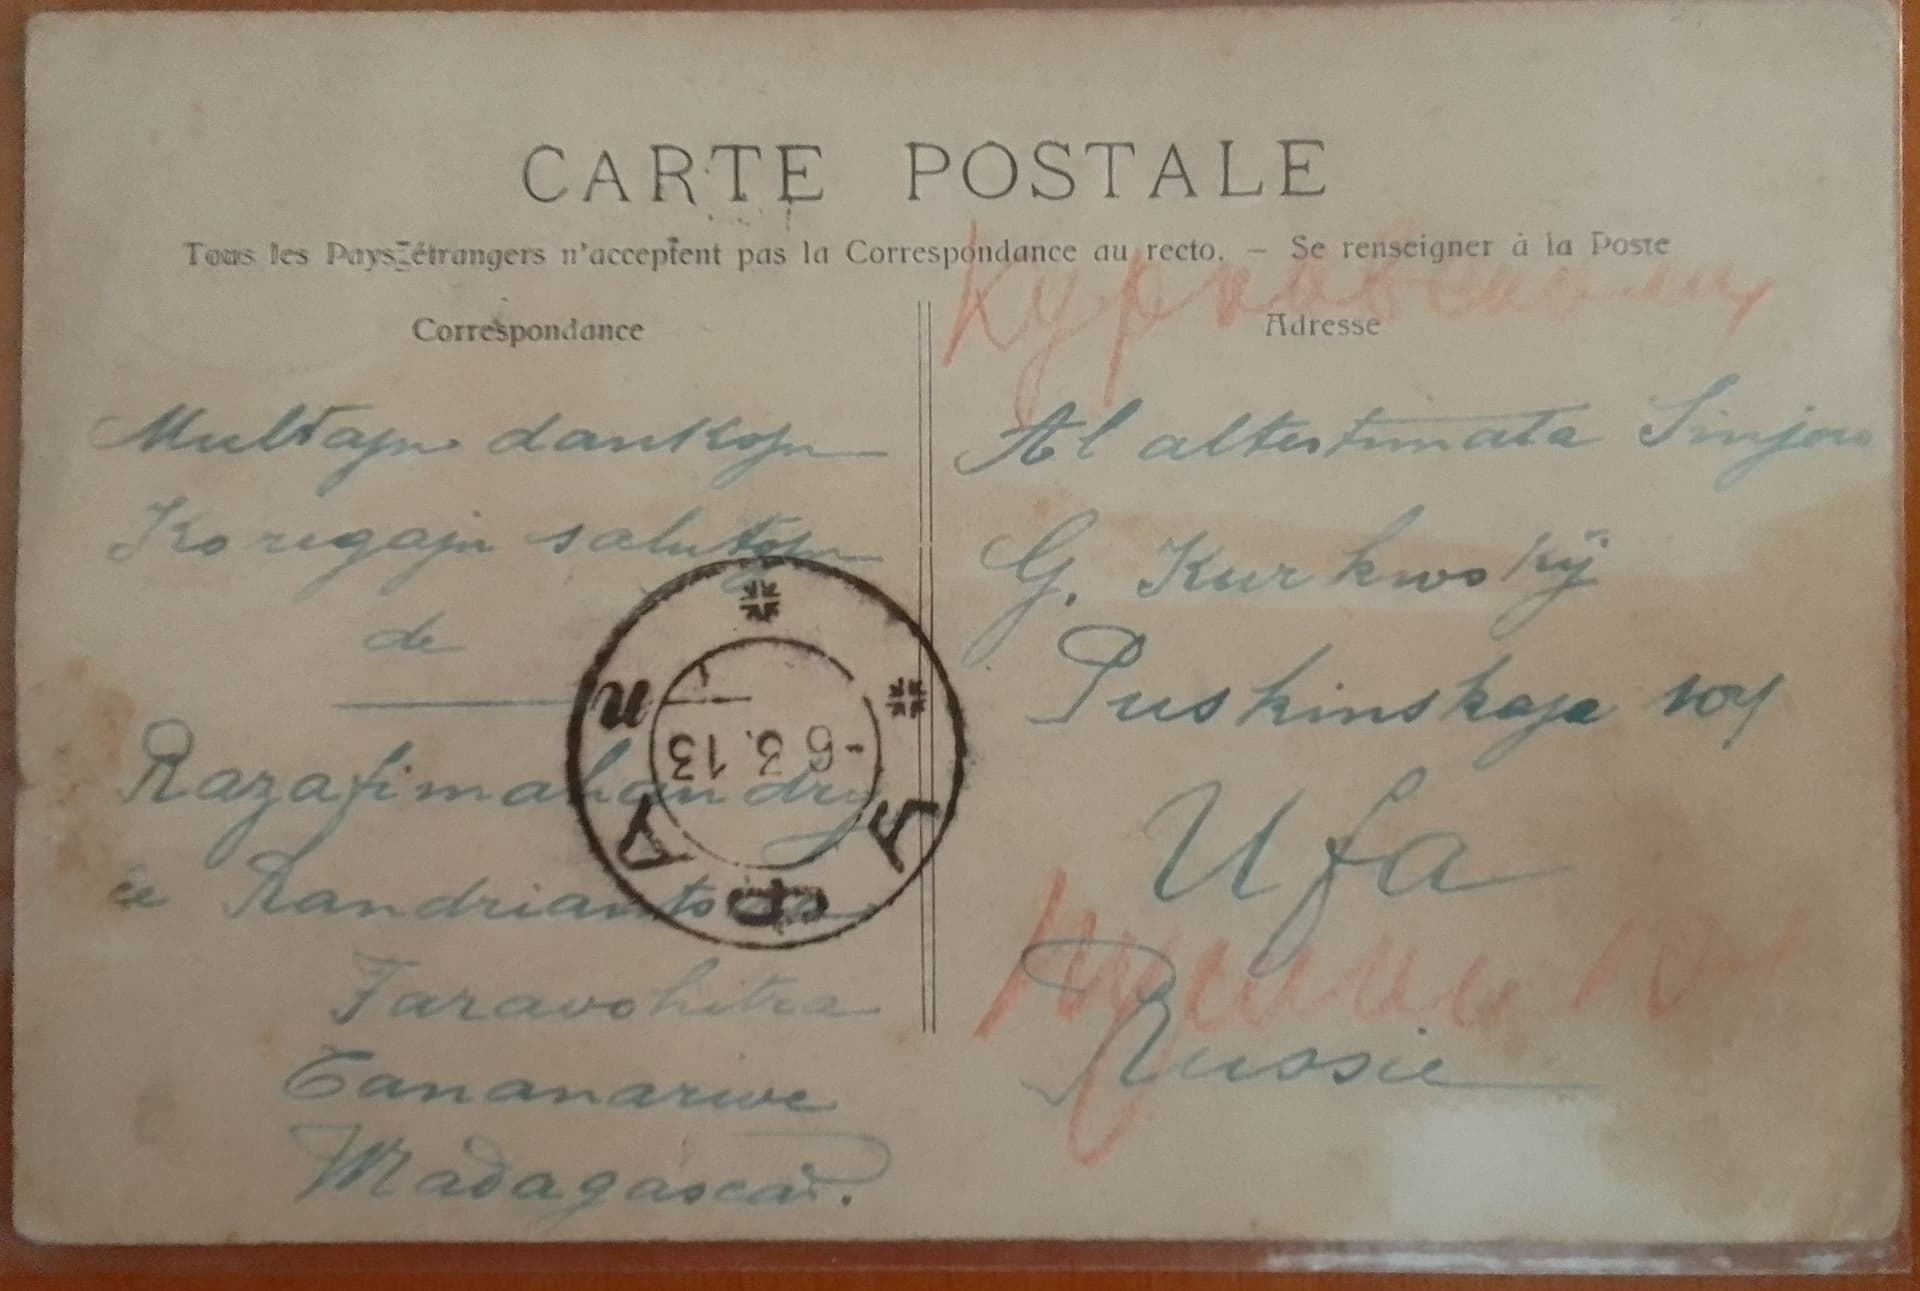 CARTE POSTALE
Tous les Pays étrangers n'acceptent pas la Correspondance au recto. — Se renseigner à la Poste
Correspondance
Multajn dankojn
Koregajn salutojn
de
Razafimahandry
ĉe Randrianto
Faravohitra
Tananarive
Madagascar.
Adresse
Al altestimata Sinjoro
G. Kurkwoskÿ
Puskinskaja 104
Ufa
Russie
УФА
-6 3.13